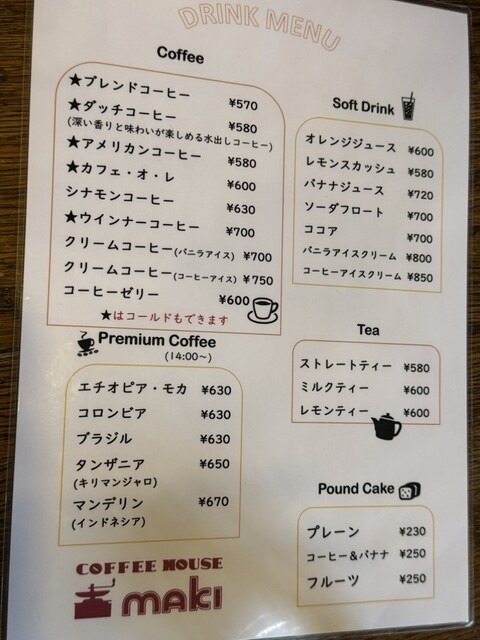 DRINK MENU
Coffee
★ブレンドコーヒー ¥570
★ダッチコーヒー ¥580
(深い香りと味わいが楽しめる水出しコーヒー)
★アメリカンコーヒー ¥580
★カフェ・オ・レ ¥600
シナモンコーヒー ¥630
★ウインナーコーヒー ¥700
クリームコーヒー(バニラアイス) ¥700
クリームコーヒー(コーヒーアイス) ¥750
コーヒーゼリー ¥600
★はコールドもできます
Premium Coffee
(14:00~)
エチオピア・モカ ¥630
コロンビア ¥630
ブラジル ¥630
タンザニア ¥650
(キリマンジャロ)
マンデリン ¥670
(インドネシア)
COFFEE HOUSE
maki
Soft Drink
オレンジジュース ¥600
レモンスカッシュ ¥580
バナナジュース ¥720
ソーダフロート ¥700
ココア ¥700
バニラアイスクリーム ¥800
コーヒーアイスクリーム ¥850
Tea
ストレートティー ¥580
ミルクティー ¥600
レモンティー ¥600
Pound Cake
プレーン ¥230
コーヒー&バナナ ¥250
フルーツ ¥250